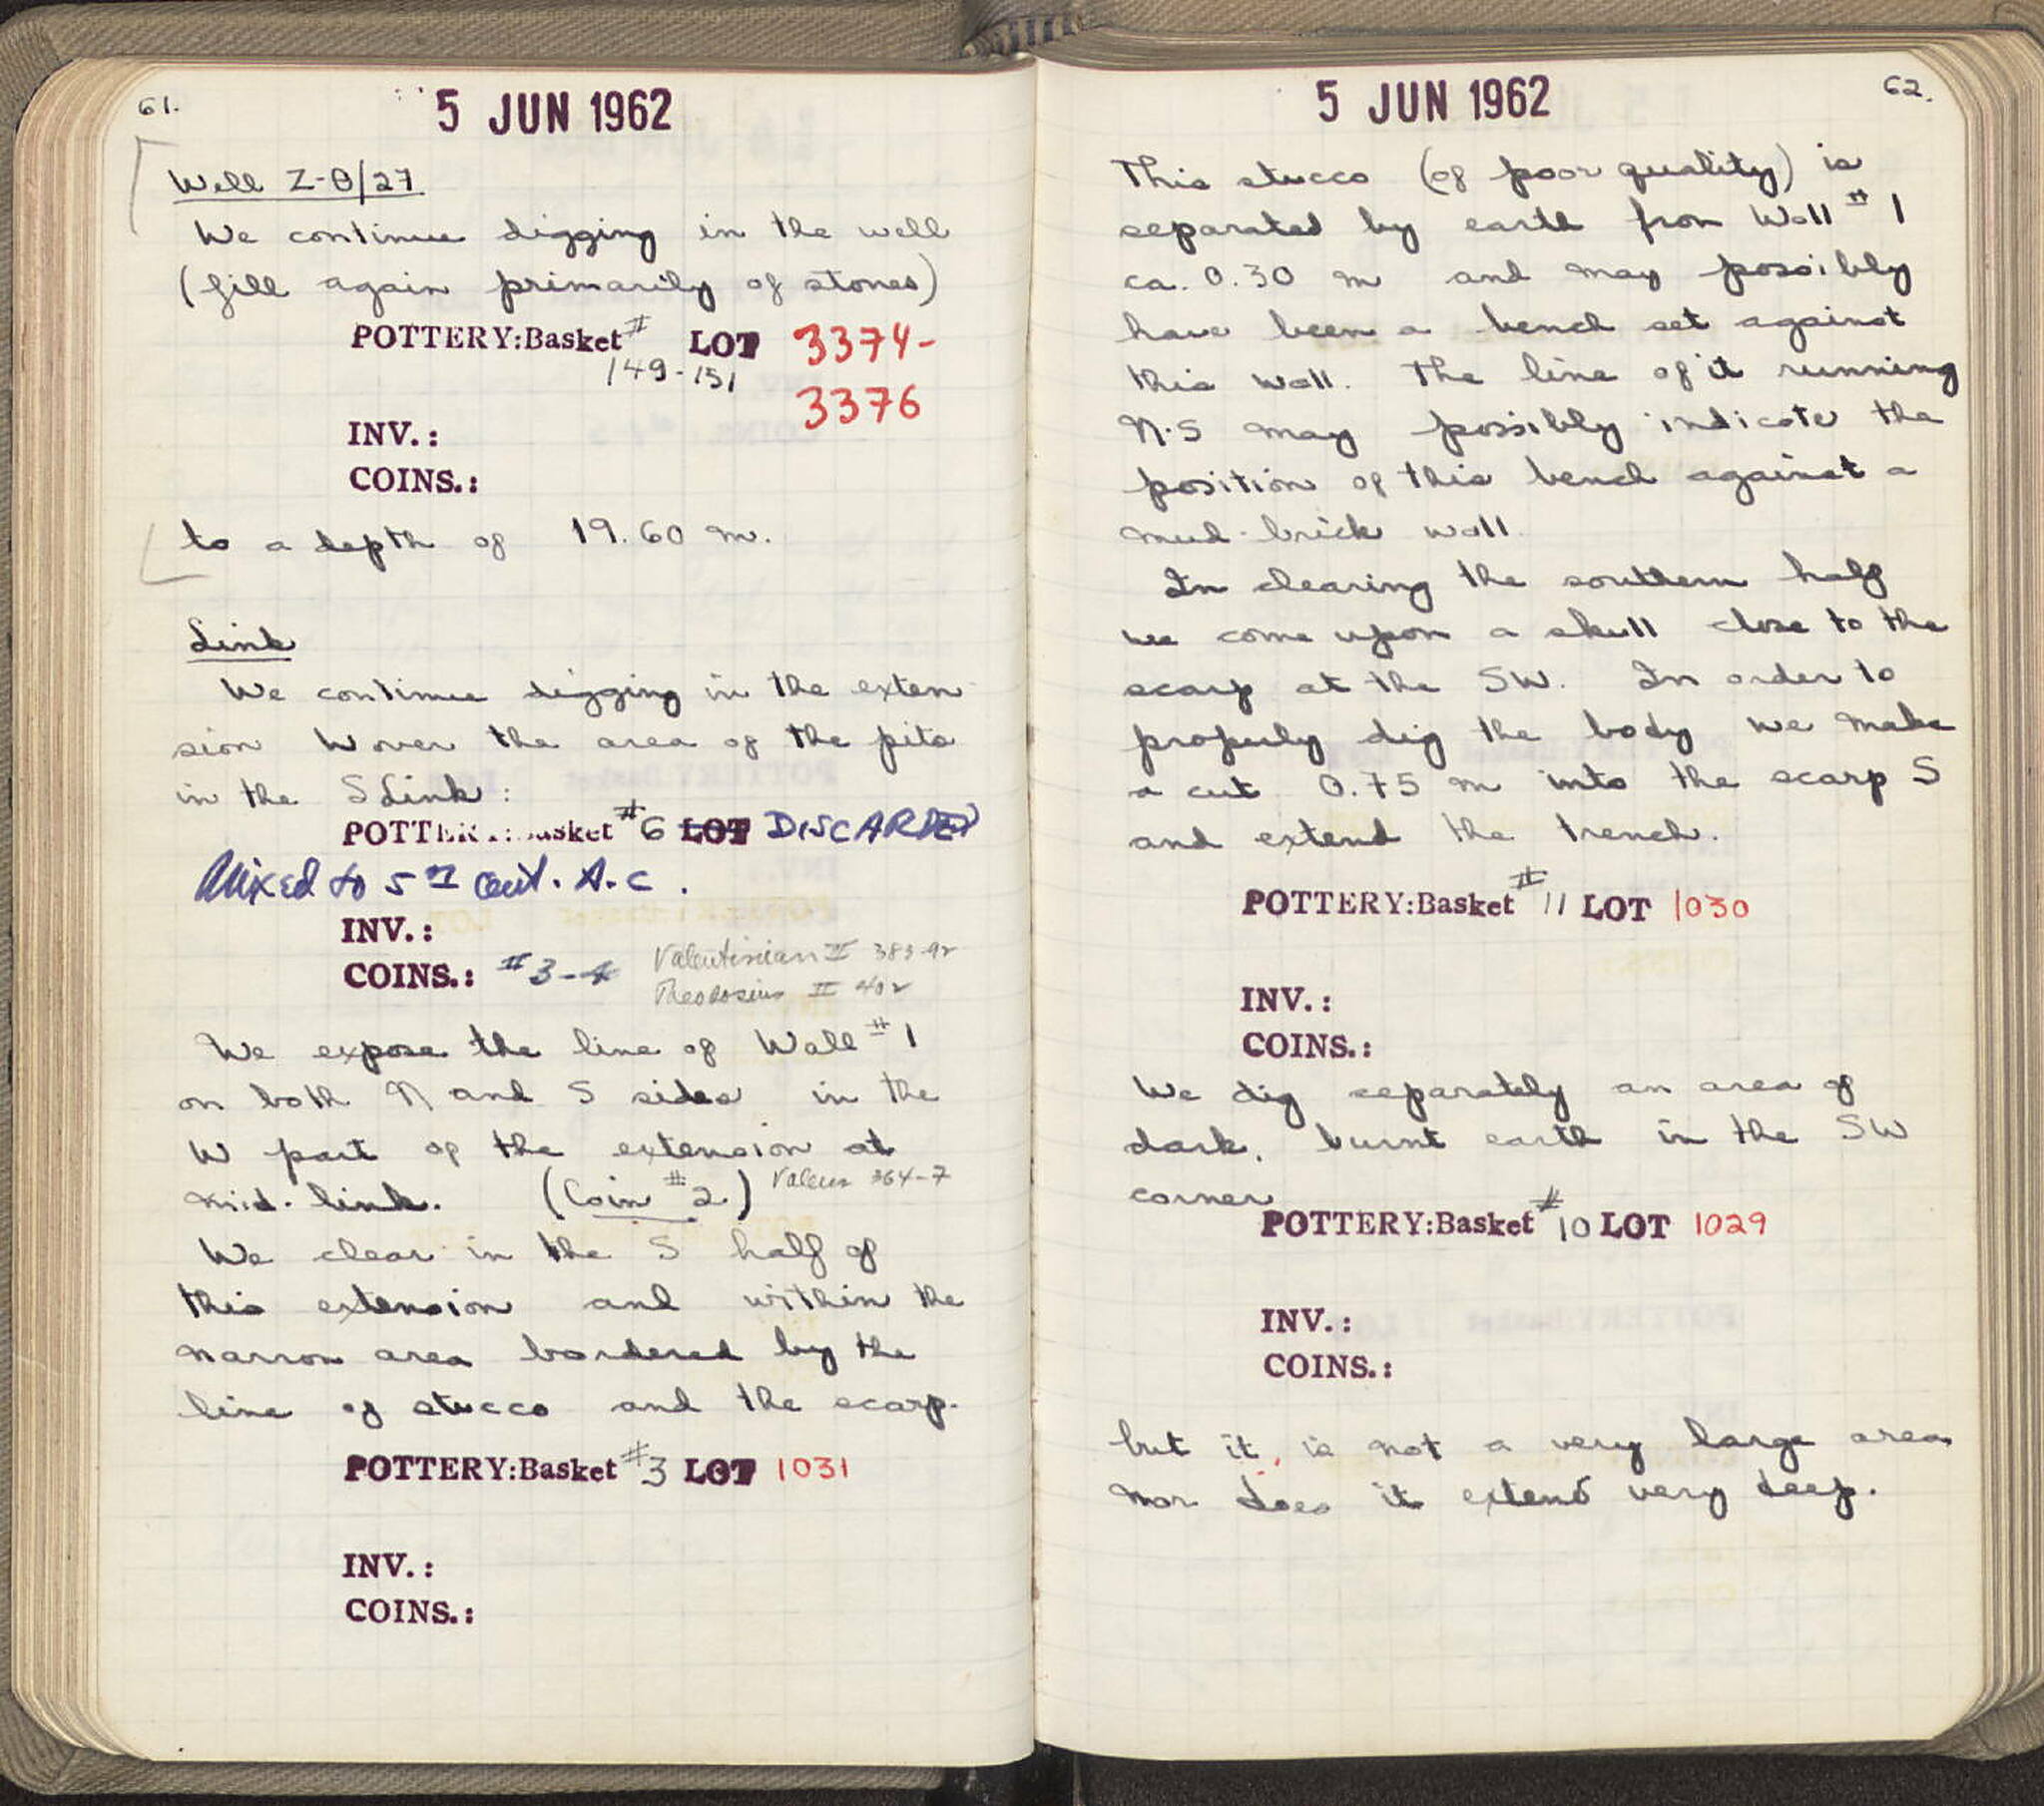 61.
5 JUN 1962
Well Z-Θ/27
We continue digging in the well
(fill again primarily of stones)
POTTERY:Basket # LOT 3374-
149-151
3376
INV.:
COINS.:
to a depth of 19.60 m.
Link
We continue digging in the exten
sion W over the area of the pits
in the S Link:
POTTERY:Basket #6 LOT DISCARDED
Mixed to 5th cent. A.C.
INV.:
COINS.: #3-4 Valentinian II 383-92
Theodosius II 402
We expose the line of Wall #1
on both N and S sides in the
W part of the extension at
mid-link. (Coin #2) Valens 364-7
We clear in the S half of
this extension and within the
narrow area bordered by the
line of stucco and the scarp.
POTTERY:Basket #3 LOT 1031
INV.:
COINS.:
62.
5 JUN 1962
This stucco (of poor quality) is
separated by earth from Wall #1
ca. 0.30 m and may possibly
have been a bench set against
this wall. The line of it running
N-S may possibly indicate the
position of this bench against a
mud-brick wall.
In clearing the southern half
we come upon a skull close to the
scarp at the SW. In order to
properly dig the body we make
a cut 0.75 m into the scarp S
and extend the trench.
POTTERY:Basket #11 LOT 1030
INV.:
COINS.:
We dig separately an area of
dark, burnt earth in the SW
corner
POTTERY:Basket #10 LOT 1029
INV.:
COINS.:
but it is not a very large area
nor does it extend very deep.